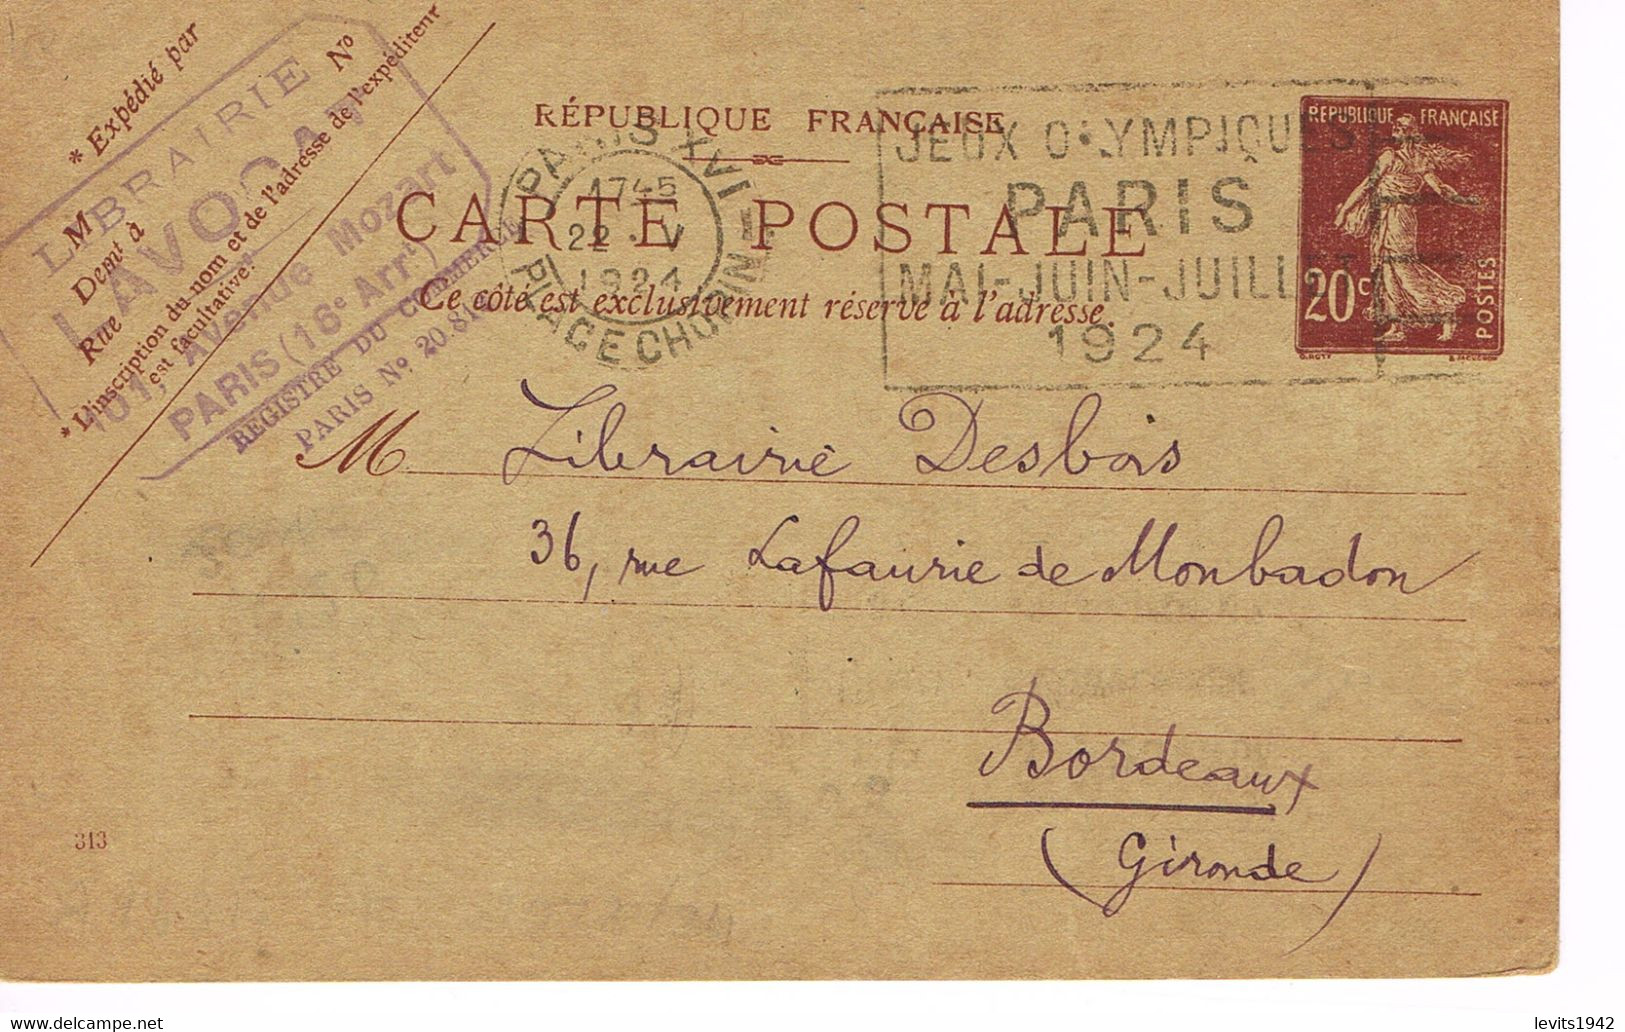 * Expédié par
M
Nº
Demt à
Rue
* L'inscription du nom et de l'adresse de l'expéditeur
est facultative.
LIBRAIRIE
101, Avenue Mozart
PARIS (16e Arrt)
REGISTRE DU COMMERCE
PARIS Nº. 20.81
RÉPUBLIQUE FRANÇAISE
CARTE POSTALE
Ce côté est exclusivement réservé à l'adresse.
PARIS XVI
1745
22 V
1924
PLACE CHOPIN
JEUX OLYMPIQUES
PARIS
MAI-JUIN-JUILLET
1924
REPUBLIQUE FRANÇAISE
20c
POSTES
O. ROTY
M Librairie Desbois
36, rue Lafaurie de Monbadon
Bordeaux
(Gironde)
313
levits1942